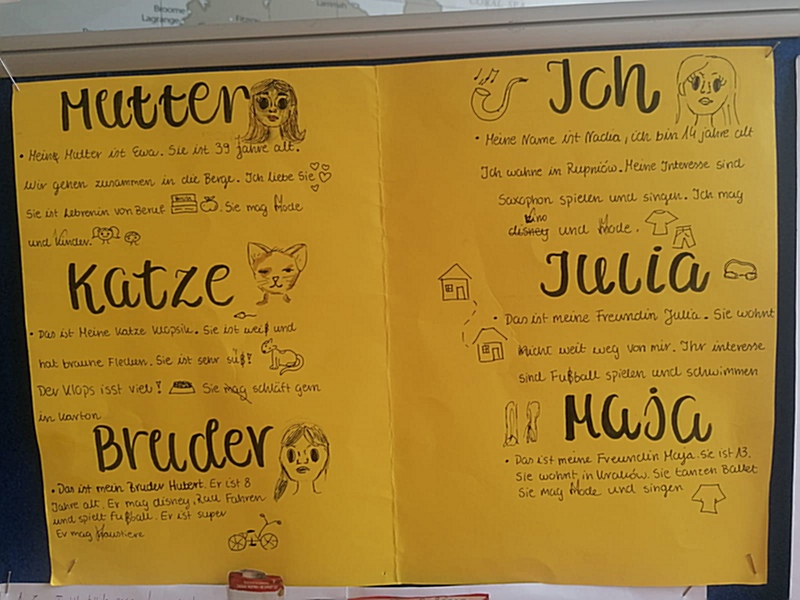 Broome
Lagrange
CORAL SEA
Mutter
• Meine Mutter ist Ewa. Sie ist 39 Jahre alt.
Wir gehen zusammen in die Berge. Ich liebe Sie
Sie ist Lehrerin von Beruf. Sie mag Mode
und Kinder.
Katze
• Das ist Meine Katze Klopsik. Sie ist weiß und
hat braune Flecken. Sie ist sehr süß!
Der Klops isst viel! Sie mag schläft gern
in Karton
Bruder
• Das ist mein Bruder Hubert. Er ist 8
Jahre alt. Er mag disney, Rad Fahren
und spielt Fußball. Er ist super
Er mag Haustiere
Ich
• Meine Name ist Nadia, ich bin 14 jahre alt
Ich wohne in Rupniów. Meine Interesse sind
Saxophon spielen und singen. Ich mag
kino
disney und Mode.
Julia
• Das ist meine Freundin Julia. Sie wohnt
nicht weit weg von mir. Ihr interesse
sind Fußball spielen und schwimmen
Maja
• Das ist meine Freundin Maja. Sie ist 13.
Sie wohnt in Kraków. Sie tanzen Ballet
Sie mag Mode und singen